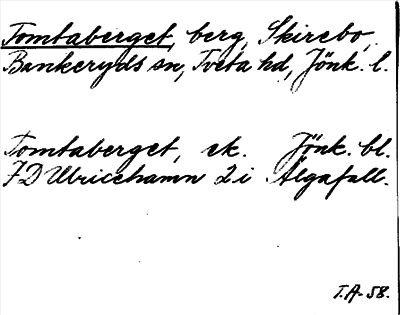 Tomtaberget, berg, Skirebo,
Bankeryds sn, Tveta hd, Jönk. l.
Tomtaberget, ek. Jönk. bl.
7D Ulricehamn 2i Älgafall.
T.A-58.